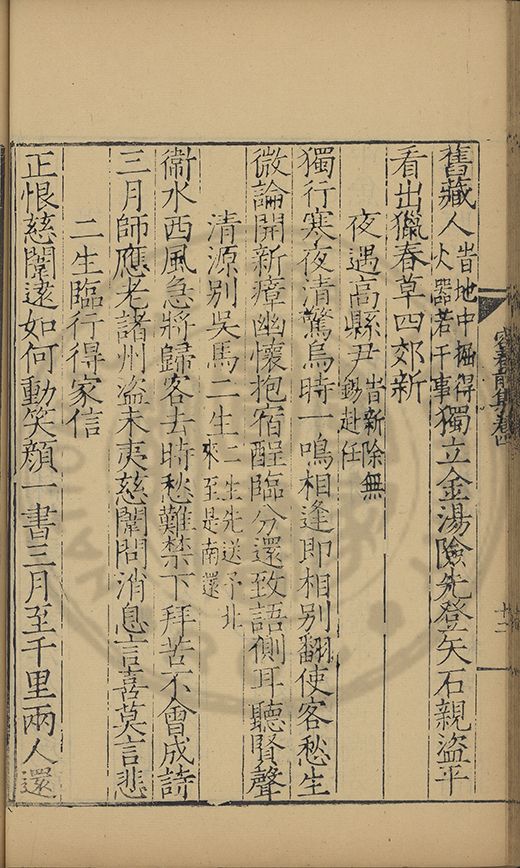 舊藏人昔地中掘得火器若干事獨立金湯險先登矢石親盜平
看出獵春草四郊新
夜遇高縣尹昔新除無錫赴任
獨行寒夜清驚烏時一鳴相逢即相別翻使客愁生
微論開新瘴幽懷抱宿酲臨分還致語側耳聽賢聲
清源別吳馬二生二生先送予北來至是南還
衞水西風急將歸客去時愁難禁下拜苦不會成詩
三月師應老諸州盜未夷慈闈問消息言喜莫言悲
二生臨行得家信
正恨慈闈遠如何動笑顏一書三月至千里兩人還
前集卷四
十二